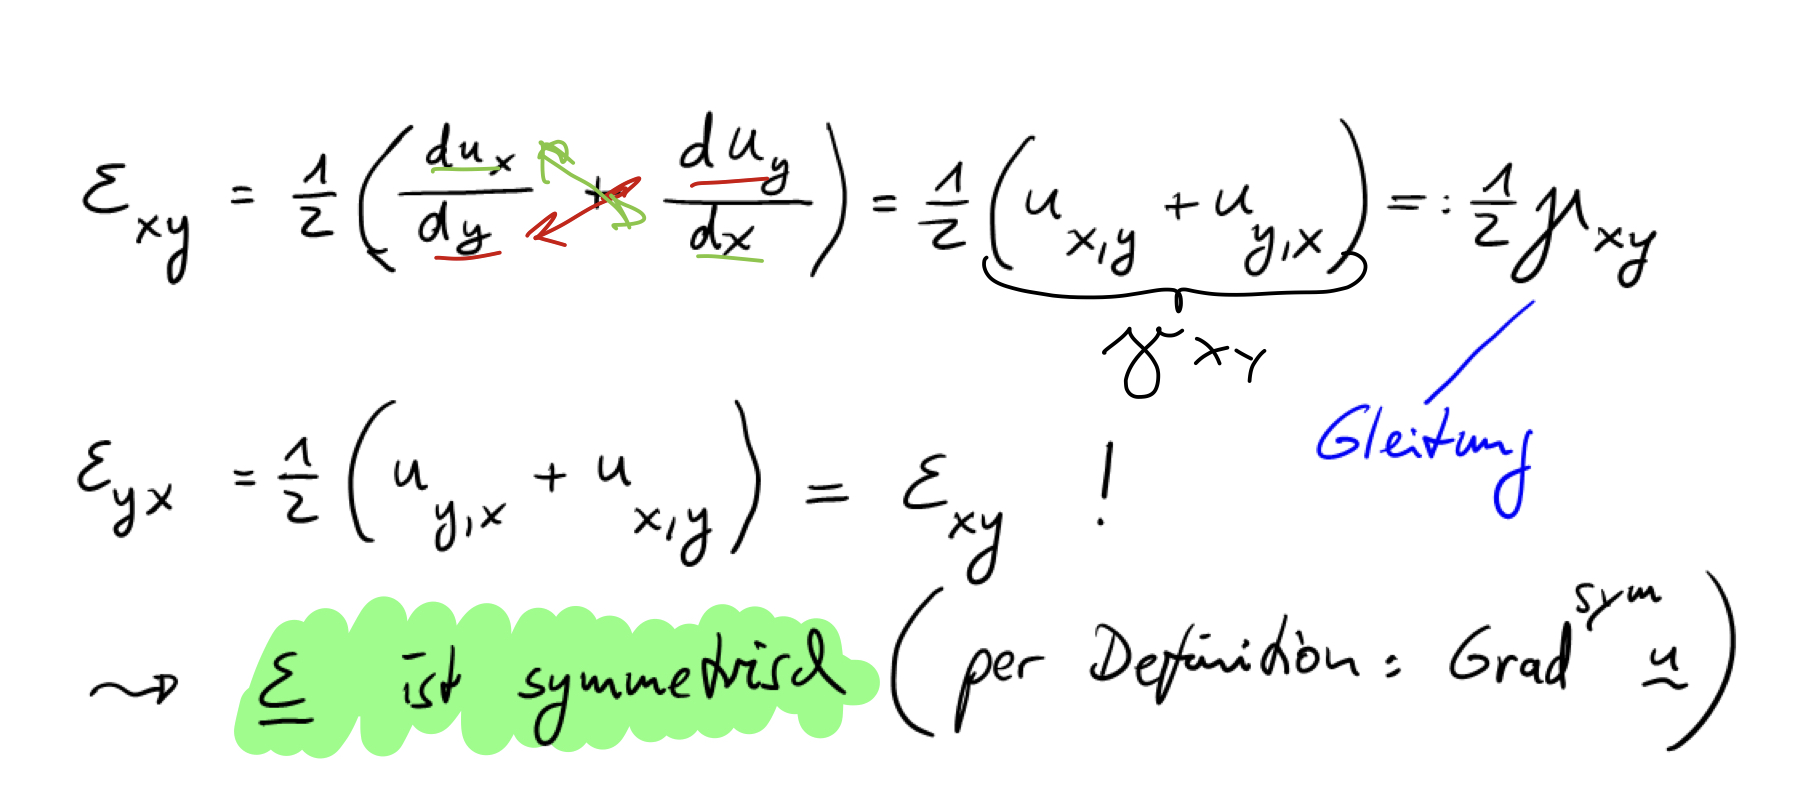 ε_xy = 1/2 (du_x/dy + du_y/dx) = 1/2 (u_x,y + u_y,x) =: 1/2 γ_xy
γ_xy
Gleitung
ε_yx = 1/2 (u_y,x + u_x,y) = ε_xy !
⇝ ε ist symmetrisch (per Definition: Grad^sym u)